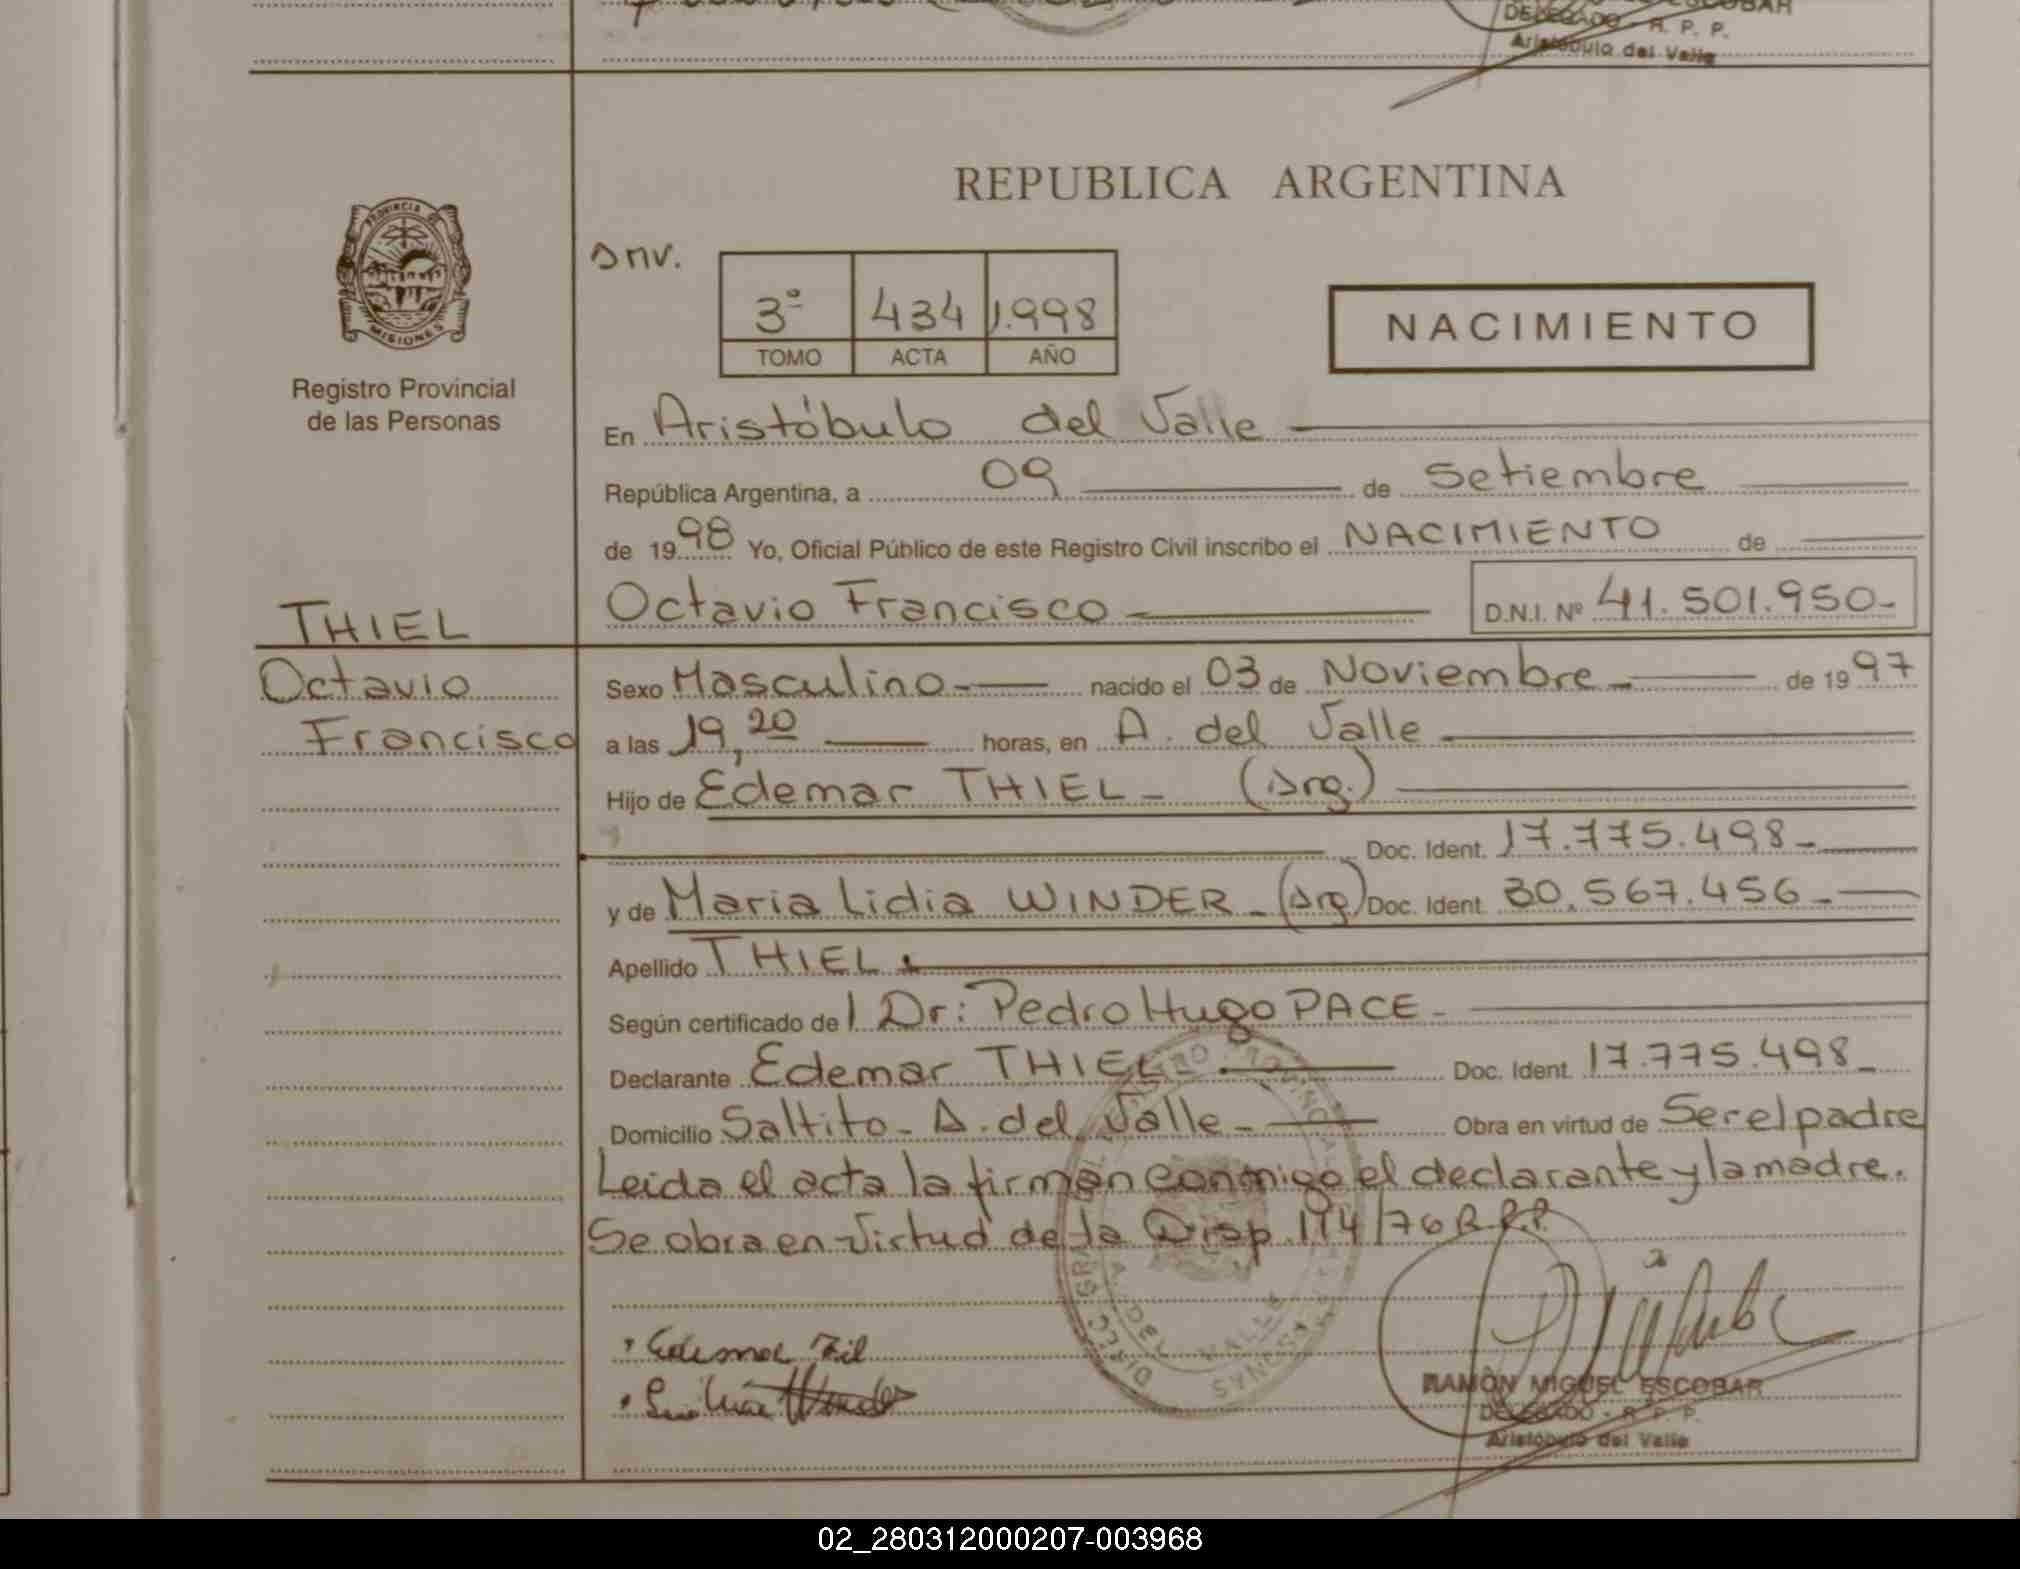 DELEGADO - R. P. P.
Aristóbulo del Valle
REPUBLICA ARGENTINA
PROVINCIA DE
MISIONES
Registro Provincial
de las Personas
snv.
3º 434 1.998
TOMO ACTA AÑO
NACIMIENTO
En Aristóbulo del Valle
República Argentina, a 09 de Setiembre
de 1998 Yo, Oficial Público de este Registro Civil inscribo el NACIMIENTO de
Octavio Francisco D.N.I. Nº 41.501.950-
THIEL
Octavio
Francisco
Sexo Masculino- nacido el 03 de Noviembre de 1997
a las 19,20 horas, en A. del Valle
Hijo de Edemar THIEL - (Arg.)
Doc. Ident. 17.775.498-
y de Maria Lidia WINDER - (Arg) Doc. Ident. 30.567.456-
Apellido THIEL.
Según certificado de l Dr: Pedro Hugo PACE-
Declarante Edemar THIEL- Doc. Ident. 17.775.498-
Domicilio Saltito- A. del Valle- Obra en virtud de Ser el padre
Leida el acta la firman conmigo el declarante y la madre.
Se obra en virtud de la Disp. 114/76 R.R.P.
A. DEL VALLE
RAMÓN MIGUEL ESCOBAR
DELEGADO - R. P. P.
Aristóbulo del Valle
02_280312000207-003968